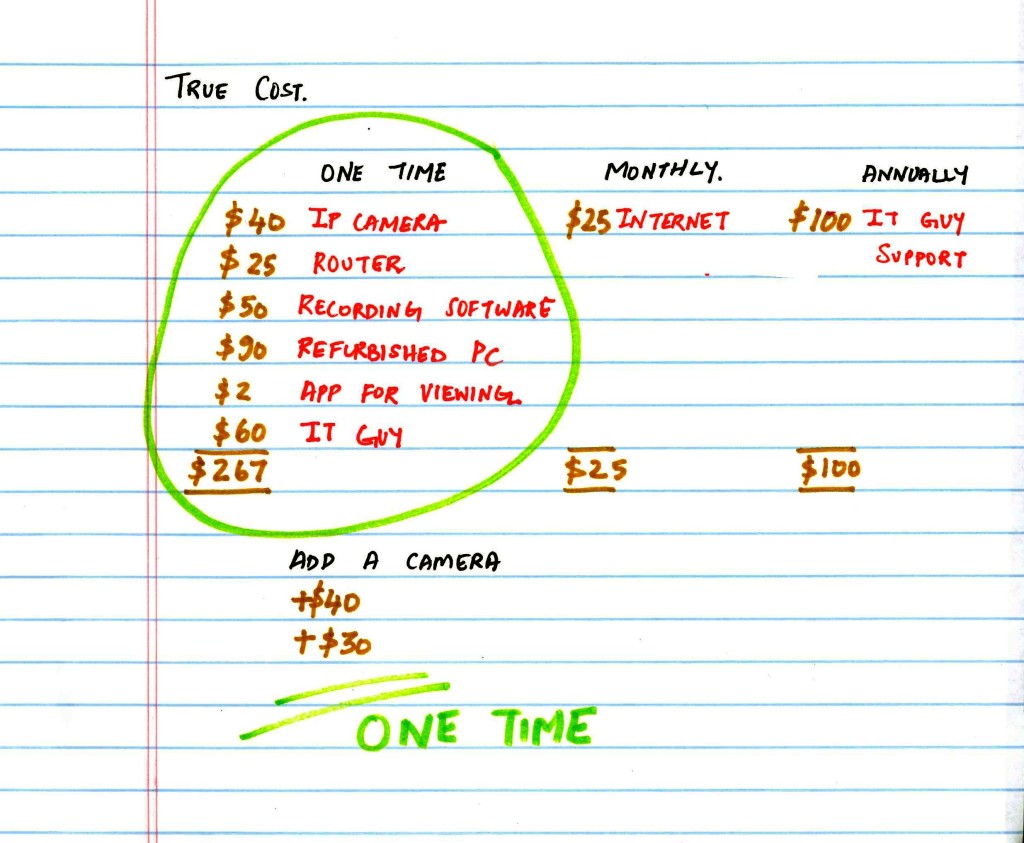 TRUE COST.
ONE TIME MONTHLY. ANNUALLY
$40 IP CAMERA $25 INTERNET $100 IT GUY
$25 ROUTER SUPPORT
$50 RECORDING SOFTWARE
$90 REFURBISHED PC
$2 APP FOR VIEWING
$60 IT GUY
$267 $25 $100
ADD A CAMERA
+$40
+$30
ONE TIME